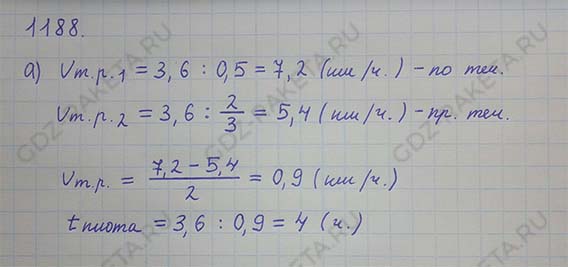 1188.
а) Vт.р.1 = 3,6 : 0,5 = 7,2 (км/ч.) – по теч.
Vт.р.2 = 3,6 : 2/3 = 5,4 (км/ч.) – пр. теч.
Vт.р. = (7,2 – 5,4)/2 = 0,9 (км/ч.)
t плота = 3,6 : 0,9 = 4 (ч.)
GDZ-RAKETA.RU